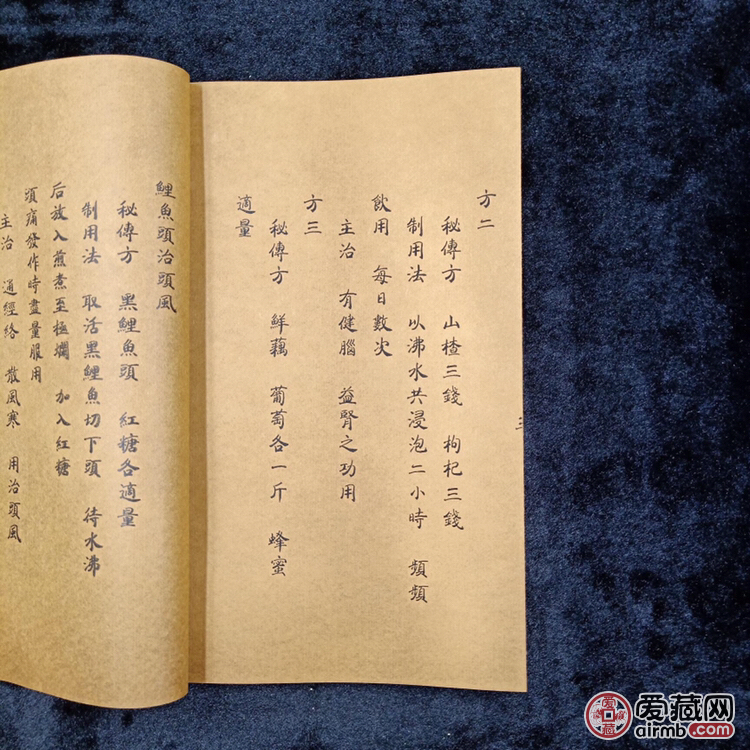 方二
秘傳方 山楂三錢 枸杞三錢
制用法 以沸水共浸泡二小時 頻頻
飲用 每日數次
主治 有健腦 益腎之功用
方三
秘傳方 鮮藕 葡萄各一斤 蜂蜜
適量
鯉魚頭治頭風
秘傳方 黑鯉魚頭 紅糖各適量
制用法 取活黑鯉魚切下頭 待水沸
后放入煎煮至極爛 加入紅糖
頭痛發作時盡量服用
主治 通經絡 散風寒 用治頭風
爱藏网
airmb.com